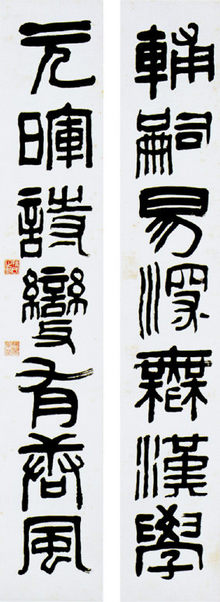 輔嗣易深無漢學
元暉詩變有唐風